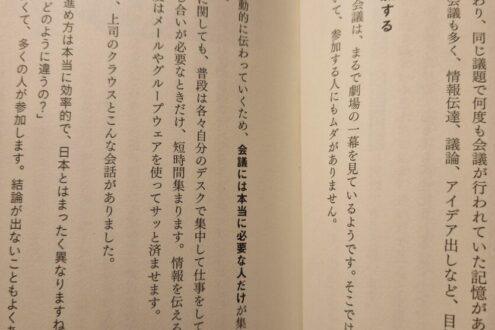 わり、同じ議題で何度も会議が行われていた記憶があ
会議も多く、情報伝達、議論、アイデア出しなど、目
する
会議は、まるで劇場の一幕を見ているようです。そこでは
て、参加する人にもムダがありません。
動的に伝わっていくため、会議には本当に必要な人だけが集
に関しても、普段は各々自分のデスクで集中して仕事をして
し合いが必要なときだけ、短時間集まります。情報を伝える
はメールやグループウェアを使ってサッと済ませます。
、上司のクラウスとこんな会話がありました。
進め方は本当に効率的で、日本とはまったく異なりますね
どのように違うの？」
くて、多くの人が参加します。結論が出ないこともよく